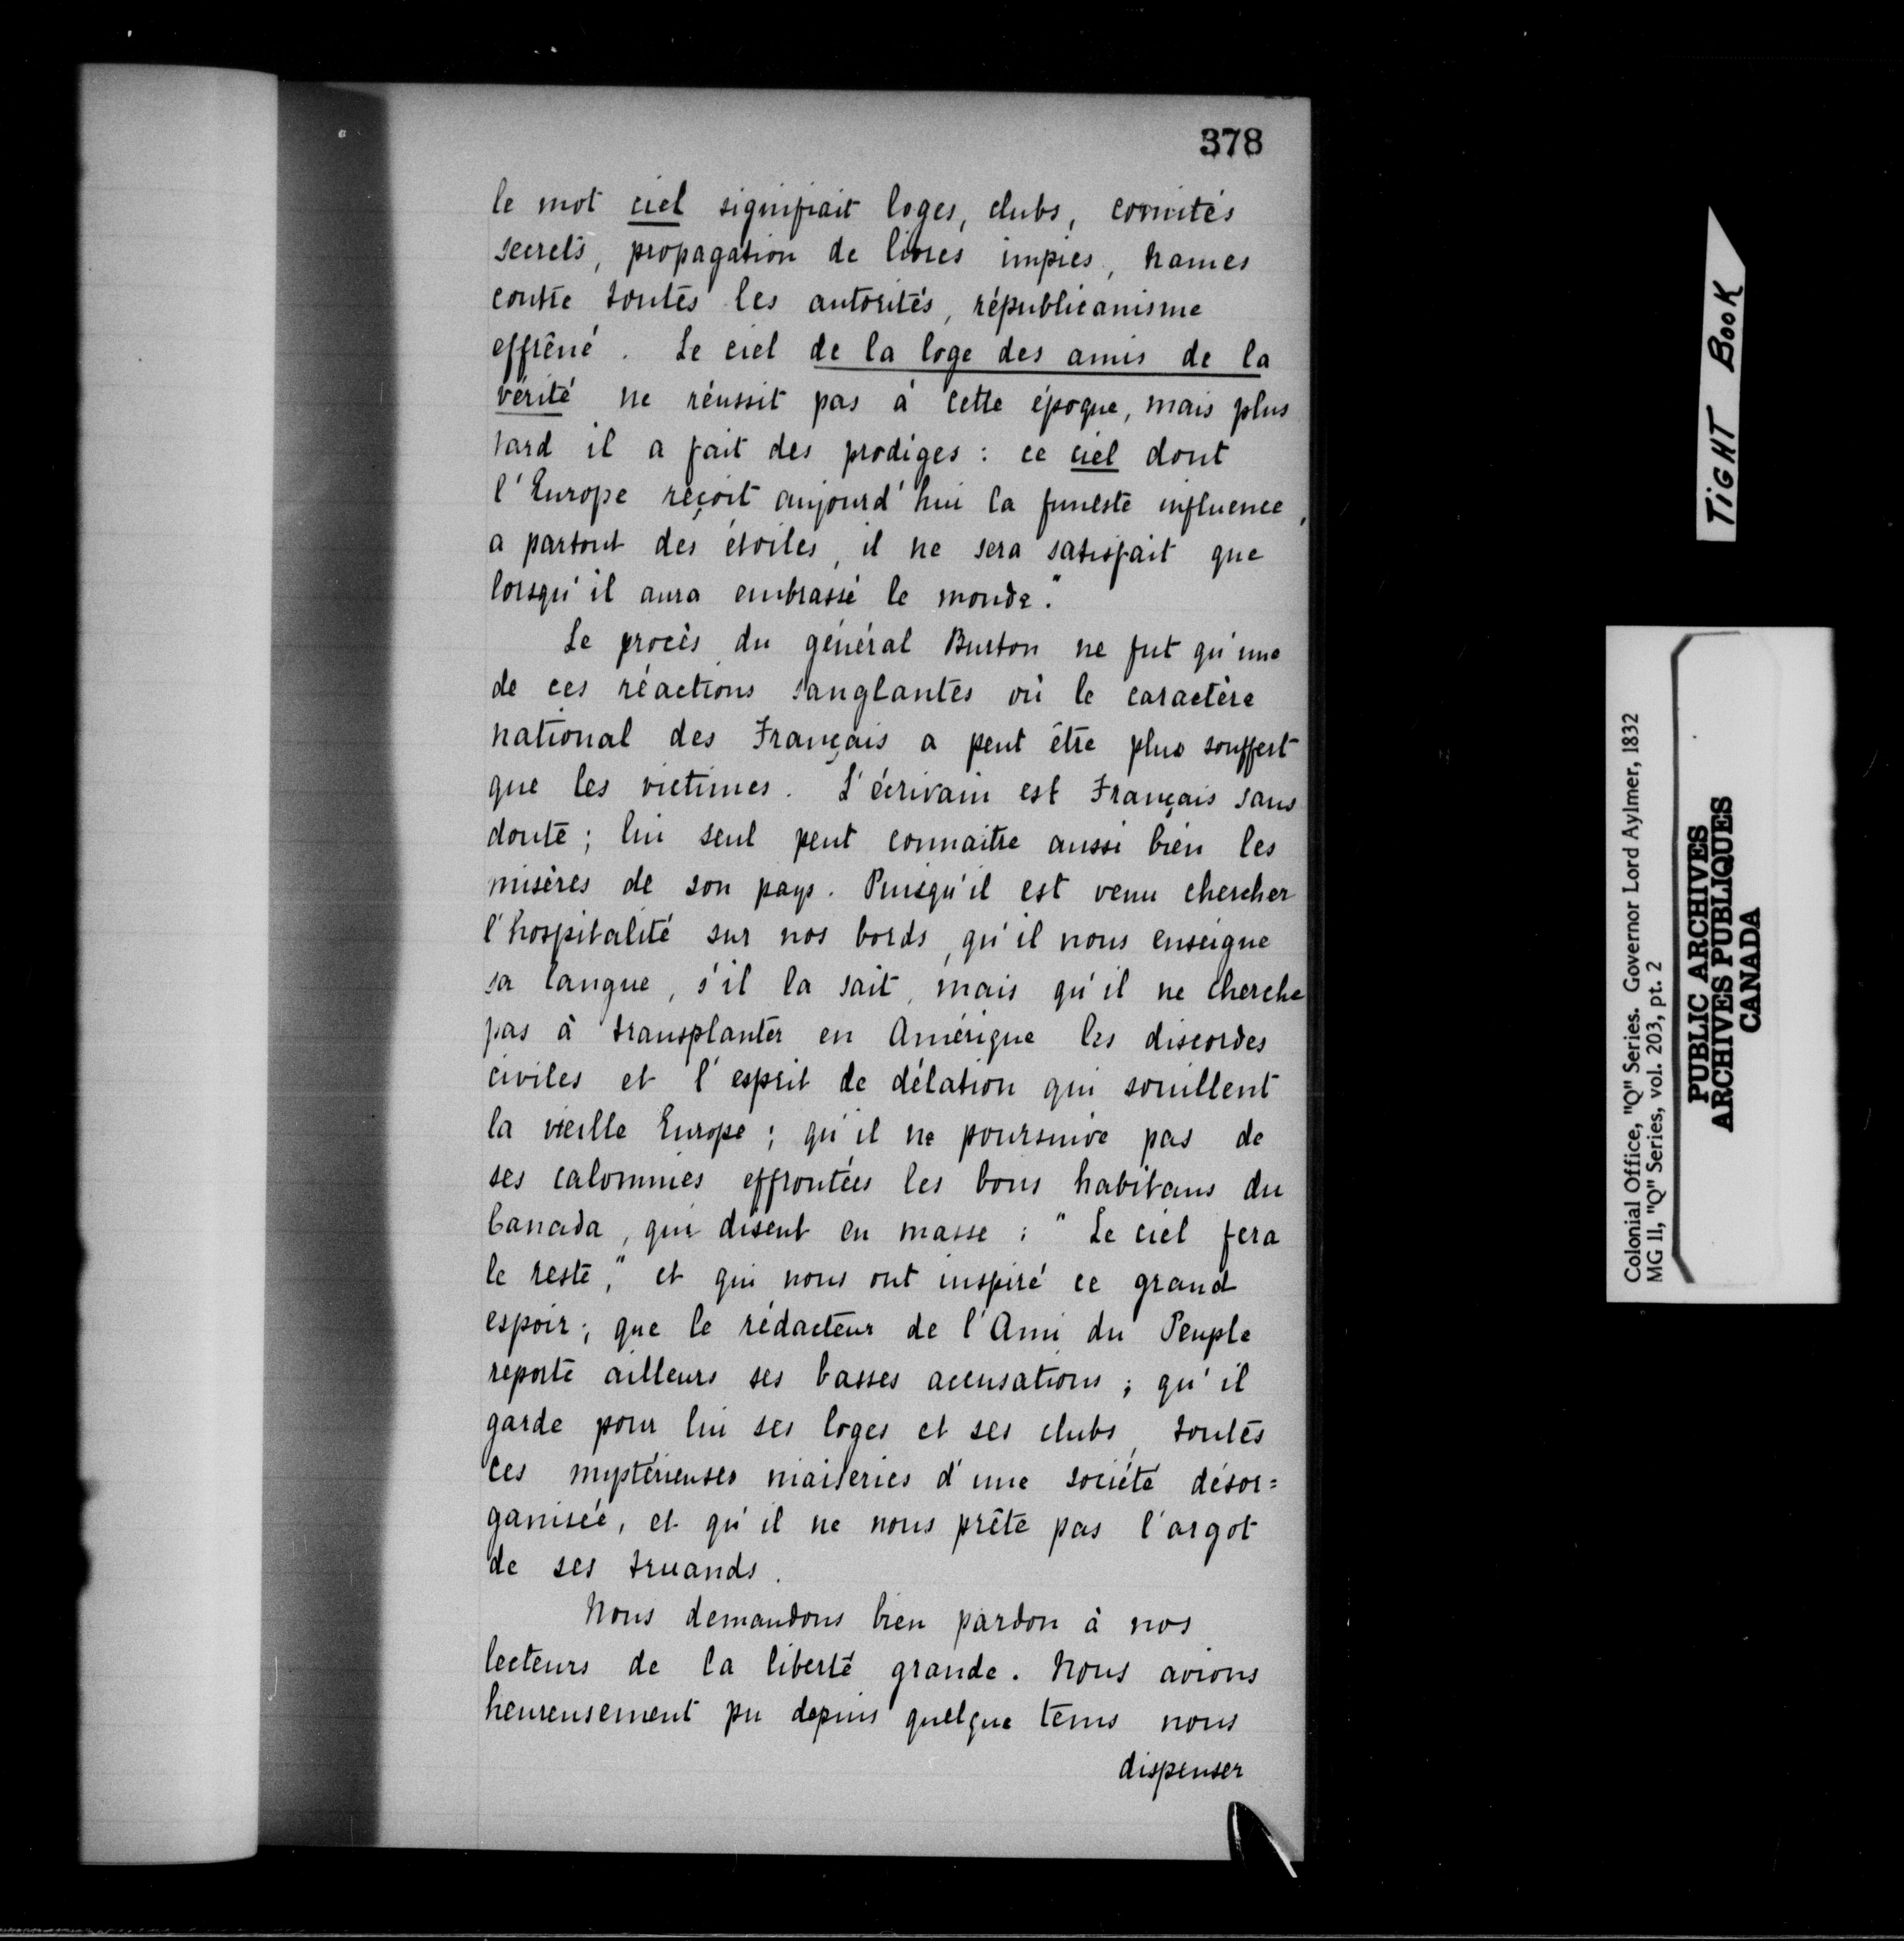 378
le mot ciel signifiait loges, clubs, comités
secrets, propagation de livres impies, trames
contre toutes les autorités, républicanisme
effrêné. Le ciel de la loge des amis de la
vérité ne réussit pas à cette époque, mais plus
tard il a fait des prodiges : ce ciel dont
l'Europe reçoit aujourd'hui la funeste influence,
a partout des étoiles, il ne sera satisfait que
lorsqu'il aura embrassé le monde."
Le procès du général Burton ne fut qu'une
de ces réactions sanglantes où le caractère
national des Français a peut être plus souffert
que les victimes. L'écrivain est Français sans
doute ; lui seul peut connaitre aussi bien les
misères de son pays. Puisqu'il est venu chercher
l'hospitalité sur nos bords, qu'il nous enseigne
sa langue, s'il la sait, mais qu'il ne cherche
pas à transplanter en Amérique les discordes
civiles et l'esprit de délation qui souillent
la vieille Europe ; qu'il ne poursuive pas de
ses calomnies effrontées les bons habitans du
Canada, qui disent en masse : " Le ciel fera
le reste," et qui nous ont inspiré ce grand
espoir ; que le rédacteur de l'Ami du Peuple
reporte ailleurs ses basses accusations ; qu'il
garde pour lui ses loges et ses clubs, toutes
ces mystérieuses niaiseries d'une société désor=
ganisée, et qu'il ne nous prête pas l'argot
de ses truands.
Nous demandons bien pardon à nos
lecteurs de la liberté grande. Nous avions
heureusement pu depuis quelque tems nous
dispenser
TIGHT BOOK
Colonial Office, "Q" Series. Governor Lord Aylmer, 1832
MG 11, "Q" Series, vol. 203, pt. 2
PUBLIC ARCHIVES
ARCHIVES PUBLIQUES
CANADA